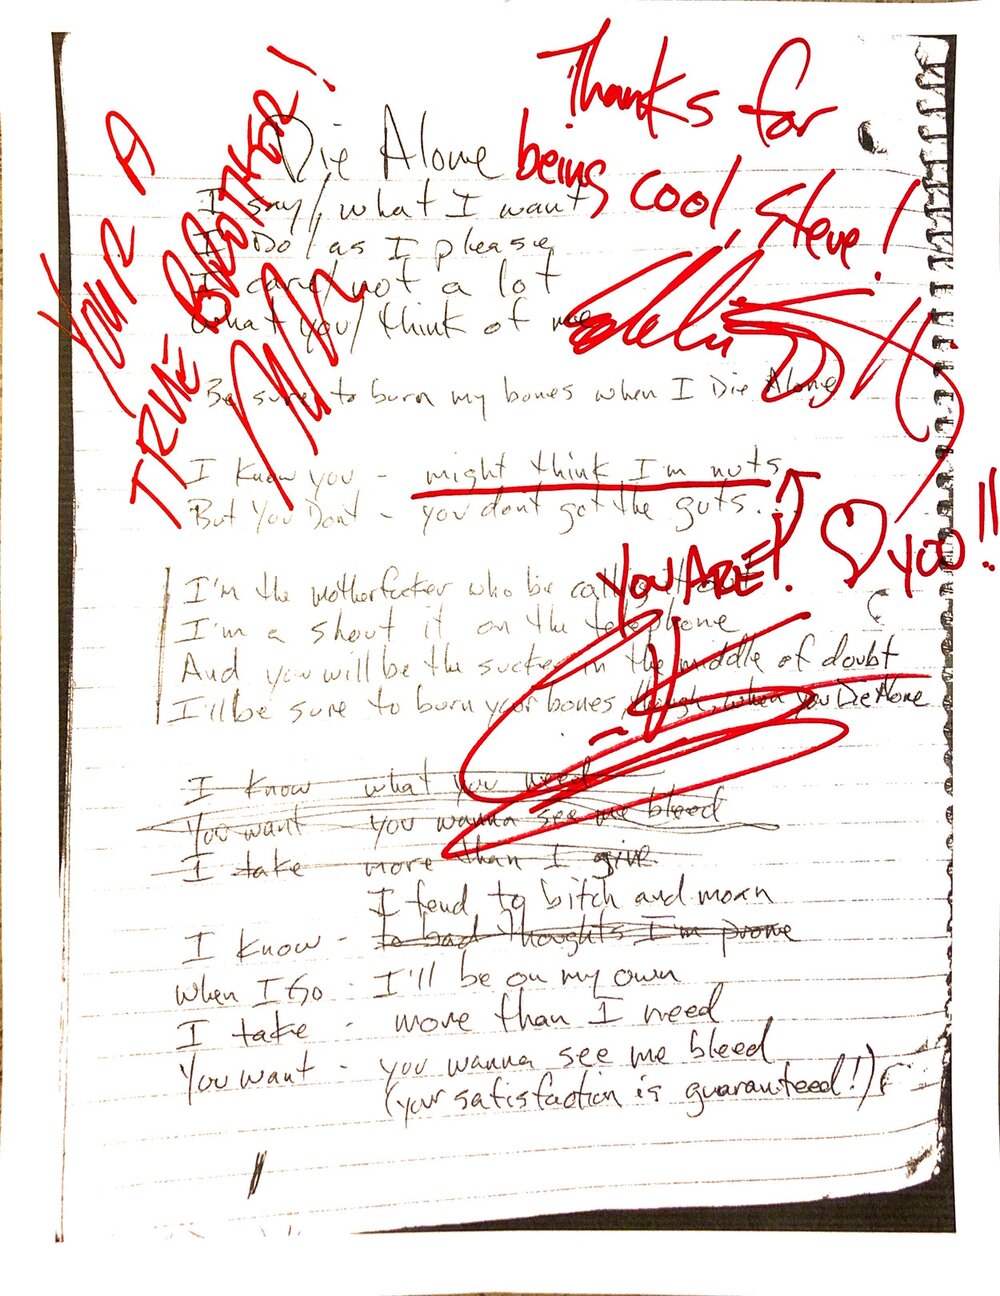 YOUR A
TRUE BROTHER!
Thanks for
being cool, Steve!
Die Alone
I say/, what I want
I Do/ as I please
I care/ not a lot
What you/ think of me
Be sure to burn my bones when I Die Alone
I know you - might think I'm nuts
But You Dont - you dont got the guts...
YOU ARE! ♡ YOO!!
I'm the motherfucker who be calling
I'm a shout it on the telephone
And you will be the sucker in the middle of doubt
I'll be sure to burn your bones, though, when you Die Alone
I know what you need
You want you wanna see me bleed
I take more than I give
I tend to bitch and moan
I know - To bad thoughts I'm prone
When I Go - I'll be on my own
I take - more than I need
You want - you wanna see me bleed
(your satisfaction is guaranteed!)